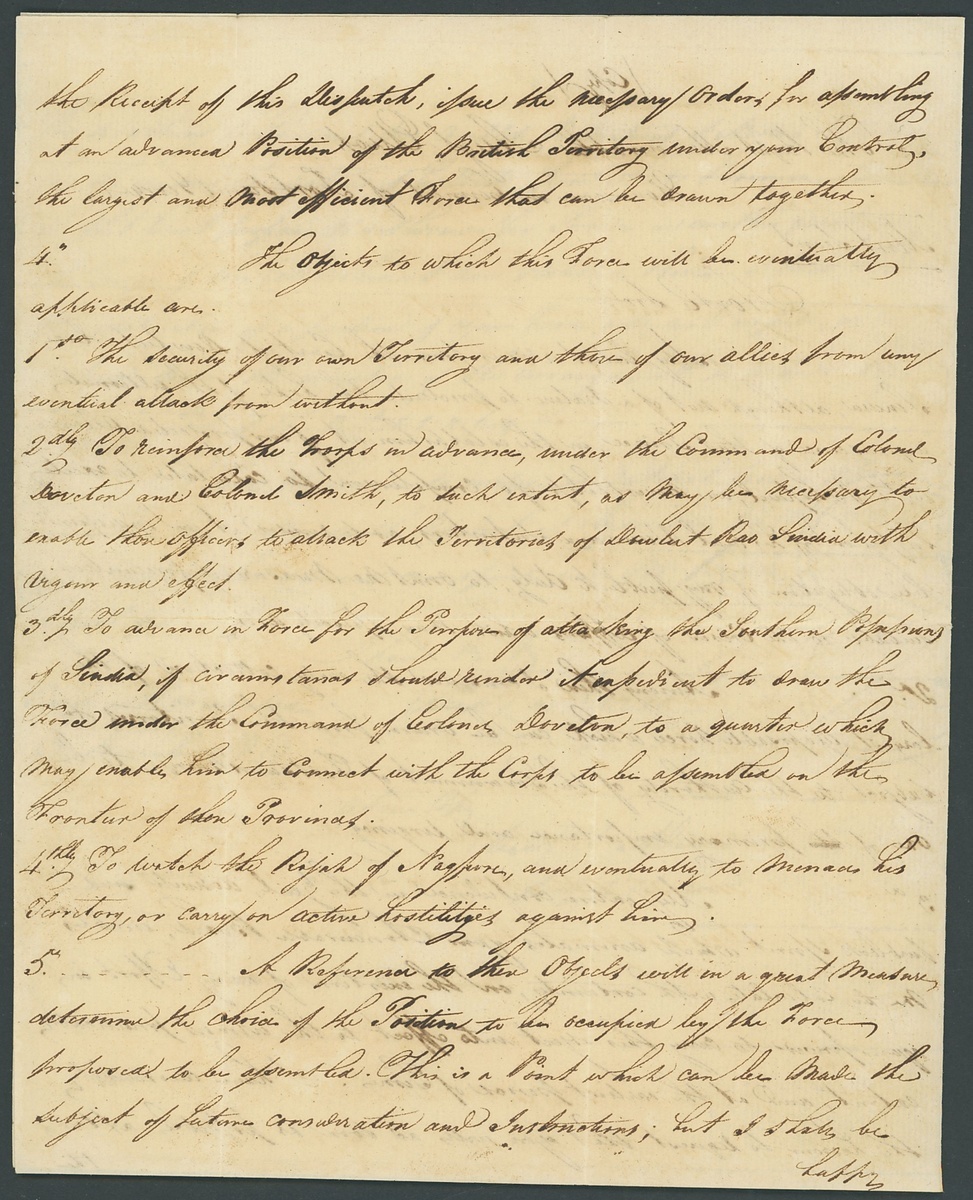 the Receipt of this Dispatch, issue the necessary Orders for assembling
at an advanced Position of the British Territory under your Control,
the largest and most efficient Force that can be drawn together.
4." The Objects to which this Force will be eventually
applicable are.
1.st The security of our own Territory and those of our allies from any
eventual attack from without.
2dly To reinforce the troops in advance, under the Command of Colonel
Doveton and Colonel Smith, to such extent, as may be necessary to
enable those officers to attack the Territories of Dowlut Rao Sindia with
vigour and effect.
3dly To advance in Force for the Purpose of attacking the Southern Possessions
of Sindia, if circumstances should render it expedient to draw the
Force under the Command of Colonel Doveton, to a quarter which
may enable him to Connect with the Corps to be assembled on the
Frontier of those Provinces.
4thly To watch the Rajah of Nagpore, and eventually to menace his
Territory, or carry on active hostilities against him.
5." - - - - - - - - A Reference to these Objects will in a great measure
determine the choice of the Position to be occupied by the Force
proposed to be assembled. This is a Point which can be made the
subject of future consideration and Instructions; but I shall be
happy